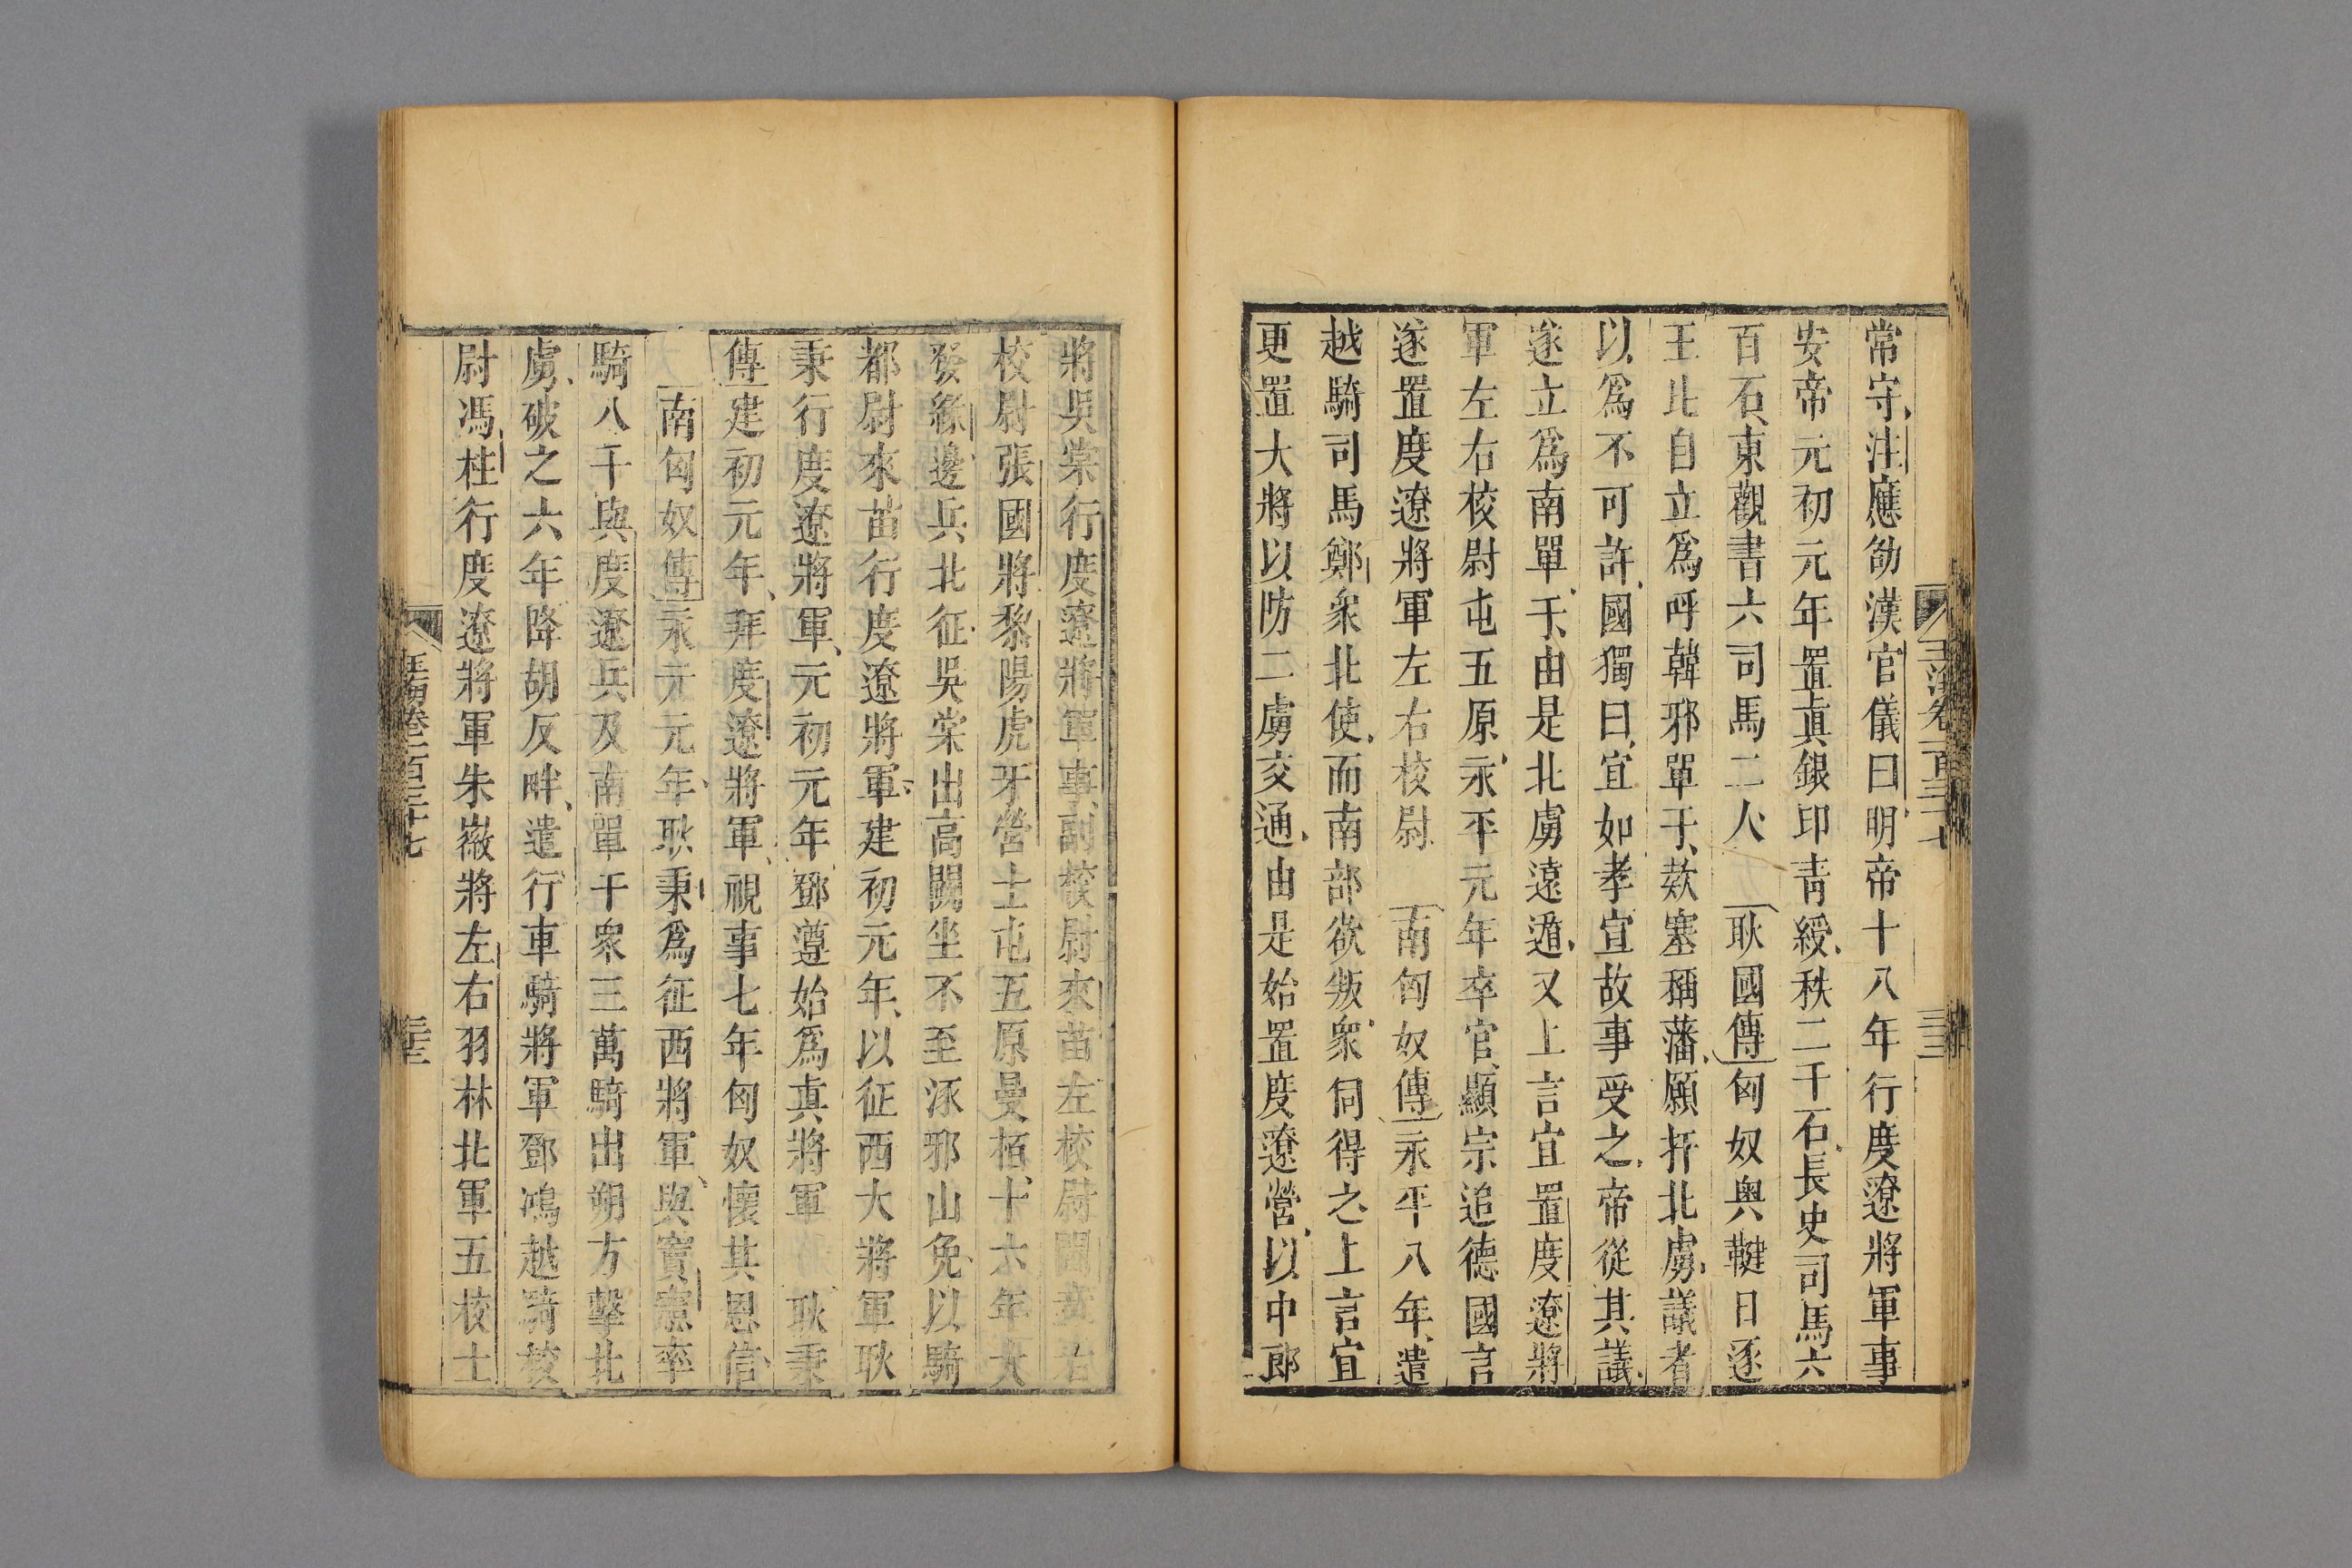 常守注應劭漢官儀曰明帝十八年行度遼將軍事
安帝元初元年置真銀印青綬秩二千石長史司馬六
百石東觀書六司馬二人 耿國傳匈奴奥鞬日逐
王比自立爲呼韓邪單于款塞稱藩願扞北虜議者
以爲不可許國獨曰宜如孝宣故事受之帝從其議
遂立爲南單于由是北虜遠遁又上言宜置度遼將
軍左右校尉屯五原永平元年卒官顯宗追德國言
遂置度遼將軍左右校尉 南匈奴傳永平八年遣
越騎司馬鄭衆北使而南部欲叛衆伺得之上言宜
更置大將以防二虜交通由是始置度遼營以中郎
將吳棠行度遼將軍事副校尉來苗左校尉閻章右
校尉張國將黎陽虎牙營士屯五原曼栢十六年大
發緣邊兵北征吳棠出高闕坐不至涿邪山免以騎
都尉來苗行度遼將軍建初元年以征西大將軍耿
秉行度遼將軍元初元年鄧遵始爲真將軍 耿秉
傳建初元年拜度遼將軍視事七年匈奴懷其恩信
南匈奴傳永元元年耿秉爲征西將軍與竇憲率
騎八千與度遼兵及南單于衆三萬騎出朔方擊北
虜破之六年降胡反畔遣行車騎將軍鄧鴻越騎校
尉馮柱行度遼將軍朱徽將左右羽林北軍五校士